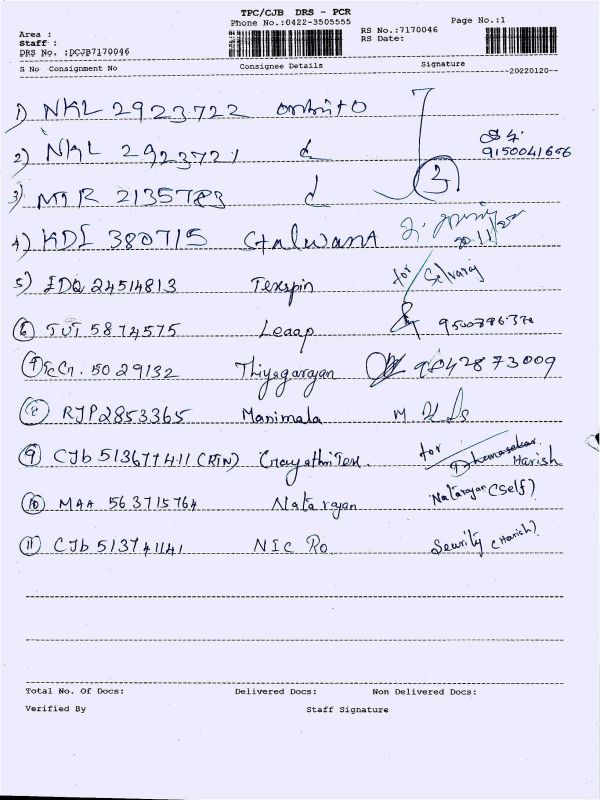 TPC/CJB DRS - PCR
Phone No.:0422-3505555
Page No.:1
Area :
Staff :
DRS No. :DCJB7170046
RS No.:7170046
RS Date:
S No Consignment No Consignee Details Signature
20220120
1) NKL 2923722
2) NKL 2923721 d
9150041666
3) MTR 2135783 d 3
4) KDI 380715 Stalwant
5) IDQ 24514813 Texspin for Selvaraj
6 TUT 5874575 Leaap
7 50 29132 Thiyagarayan 9842873009
8 RJP2853365 Manimala
9 CJb 513677411 (RTN) Gayathri Tex. for Dhanasekar Harish
10 MAA 563715764 Natarayan Natarayan (Self)
11 CJb 513741141 NIC Ro Security (Harish)
Total No. Of Docs: Delivered Docs: Non Delivered Docs:
Verified By Staff Signature